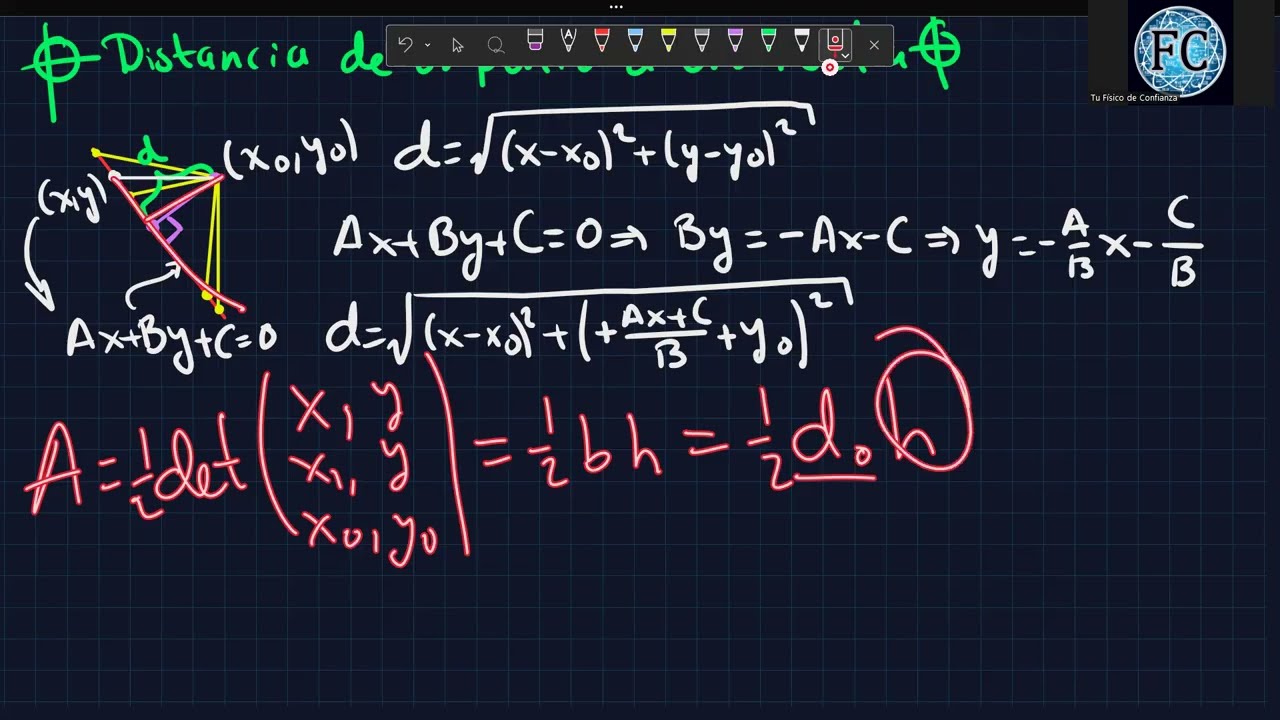 Distancia de
FC
Tu Físico de Confianza
d
(x₀, y₀) d=√((x-x₀)²+(y-y₀)²)
(x,y)
Ax+By+C=0 ⇒ By=-Ax-C ⇒ y=-A/B x - C/B
Ax+By+C=0 d=√((x-x₀)²+(+(Ax+C)/B+y₀)²)
A=½det(x, y
x₁, y
x₀, y₀) = ½bh = ½d₀h